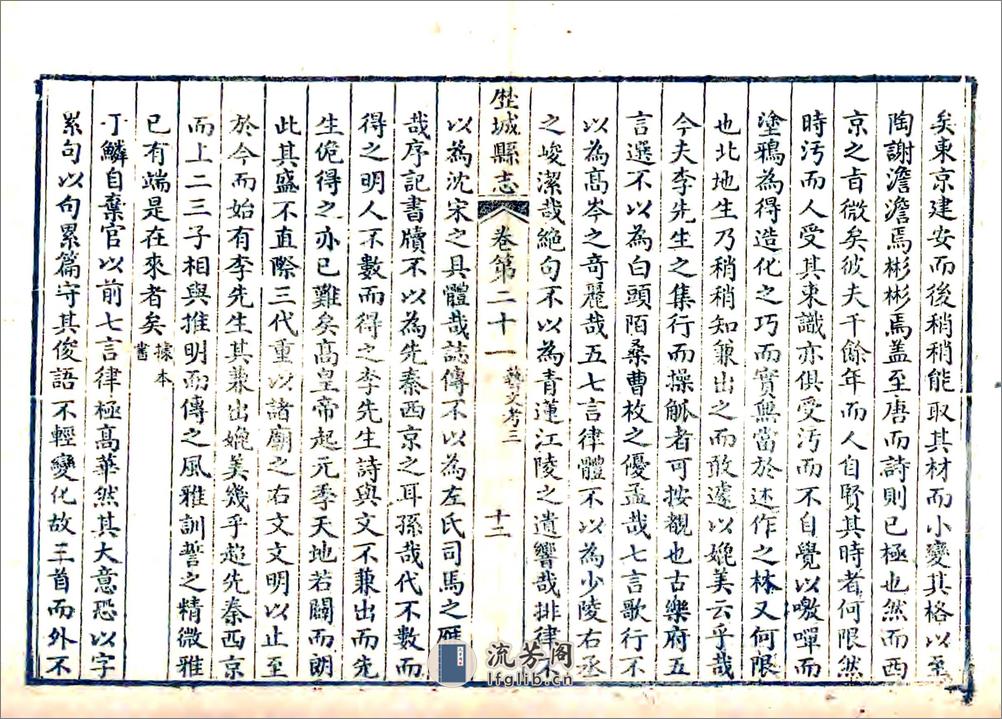 矣東京建安而後稍稍能取其材而小變其格以至
陶謝澹澹焉彬彬焉盖至唐而詩則已極也然而西
京之旨微矣彼夫千餘年而人自賢其時者何限然
時汚而人受其東識亦俱受汚而不自覺以噭嘽而
塗鴉為得造化之巧而實無當於述作之林又何限
也北地生乃稍稍知兼出之而敢遽以媲美云乎哉
今夫李先生之集行而操觚者可按觀也古樂府五
言選不以為白頭陌桑曹枚之優孟哉七言歌行不
以為高岑之奇麗哉五七言律體不以為少陵右丞
之峻潔哉絶句不以為青蓮江陵之遺響哉排律不
歷城縣志 卷第二十一 藝文考三 十二
以為沈宋之具體哉誌傳不以為左氏司馬之
哉序記書牘不以為先秦西京之耳孫哉代不數而
得之明人不數而得之李先生詩與文不兼出而先
生俛得之亦已難矣高皇帝起元季天地若闢而朗
此其盛不直際三代重以諸廟之右文文明以止至
於今而始有李先生其兼出媲美幾乎超先秦西京
而上二三子相與推明而傳之風雅訓誓之精微雅
已有端是在來者矣 據本舊
于鱗自棄官以前七言律極高華然其大意恐以字
累句以句累篇守其俊語不輕變化故三首而外不
流芳阁
lfglib.cn